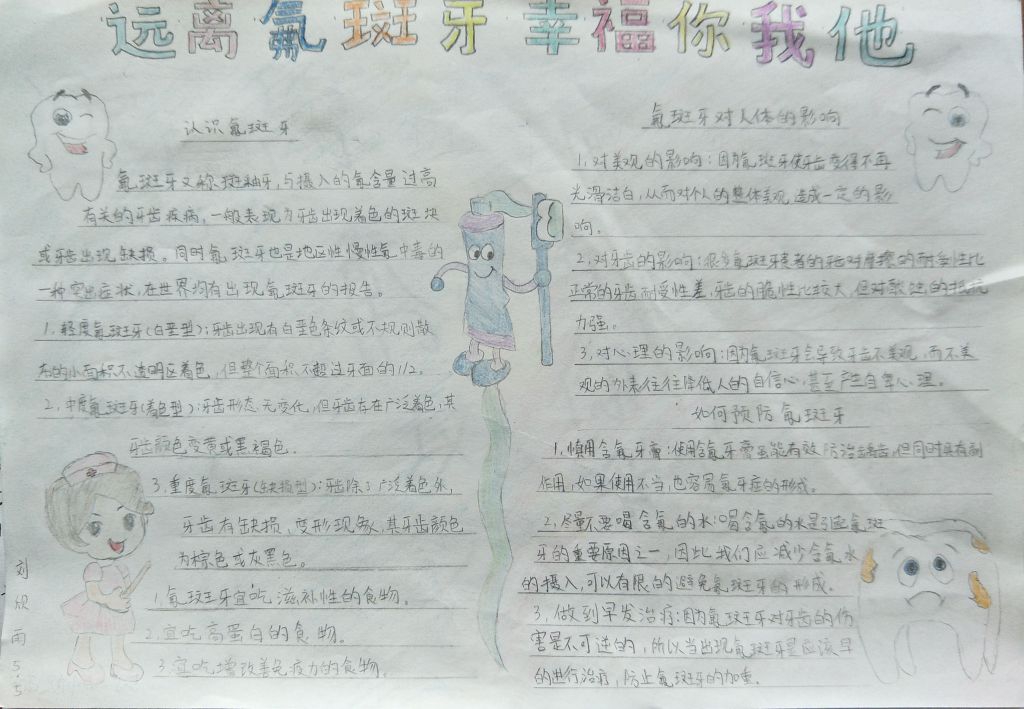 远离氟斑牙幸福你我他
认识氟斑牙
氟斑牙又称斑釉牙,与摄入的氟含量过高
有关的牙齿疾病,一般表现为牙齿出现着色的斑块
或牙齿出现缺损。同时氟斑牙也是地区性慢性氟中毒的
一种突出症状,在世界均有出现氟斑牙的报告。
1,轻度氟斑牙(白垩型):牙齿出现有白垩色条纹或不规则散
布的小面积不透明区着色,但整个面积不超过牙面的1/2。
2,中度氟斑牙(着色型):牙齿形态无变化,但牙齿存在广泛着色,其
牙齿颜色变黄或黑褐色.
3,重度氟斑牙(缺损型):牙齿除了广泛着色外,
牙齿有缺损,变形现象,其牙齿颜色
为棕色或灰黑色。
1.氟斑牙宜吃滋补性的食物.
2.宜吃高蛋白的食物.
3.宜吃增改善免疫力的食物.
刘欣雨5.5
氟斑牙对人体的影响
1,对美观的影响:因为氟斑牙使牙齿变得不再
光滑洁白,从而对个人的整体美观造成一定的影
响.
2,对牙齿的影响:很多氟斑牙患者的牙齿对摩擦的耐受性比
正常的牙齿耐受性差,牙齿的脆性比较大,但对酸蚀的抵抗
力强。
3,对心理的影响:因为氟斑牙会导致牙齿不美观,而不美
观的外表往往降低人的自信心,甚至产生自卑心理.
如何预防氟斑牙
1,慎用含氟牙膏:使用含氟牙膏虽能有效防治龋齿,但同时具有副
作用,如果使用不当,也容易氟牙症的形成。
2,尽量不要喝含氟的水:喝含氟的水是引起氟斑
牙的重要原因之一,因此我们应减少含氟水
的摄入,可以有限的避免氟斑牙的形成.
3,做到早发治疗:因为氟斑牙对牙齿的伤
害是不可逆的,所以当出现氟斑牙是应该早
的进行治疗,防止氟斑牙的加重.